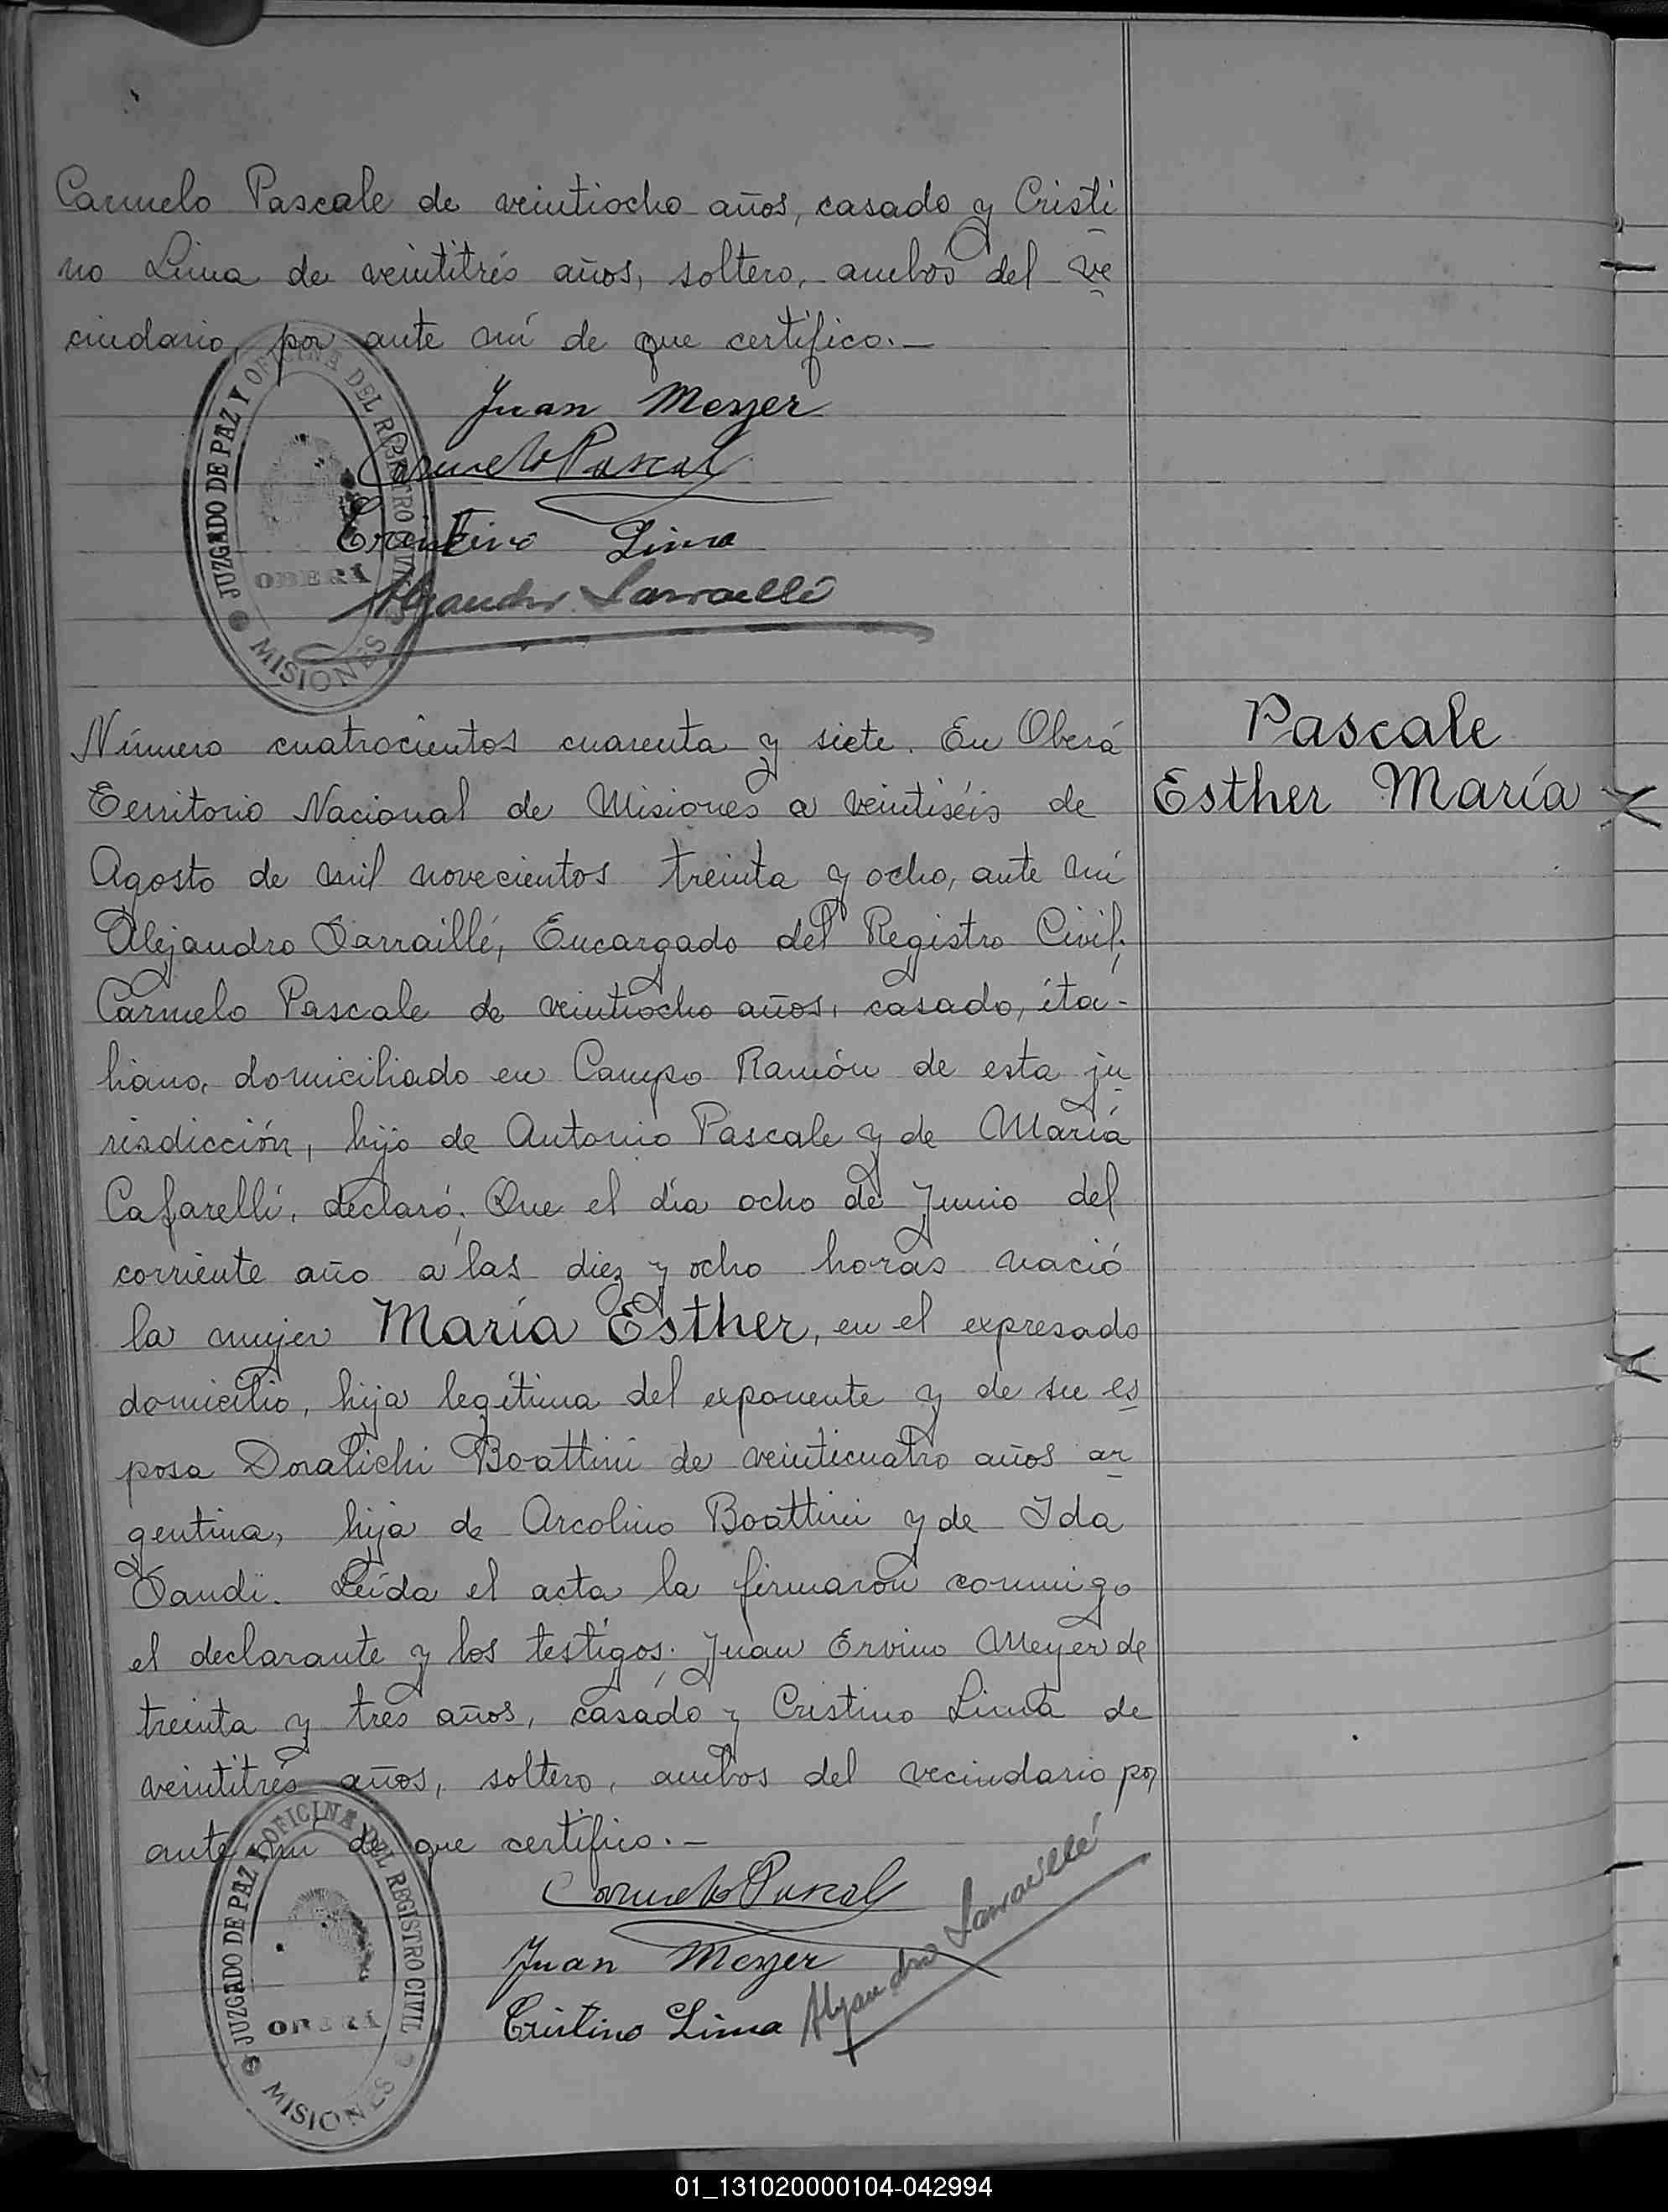 Carmelo Pascale de veintiocho años, casado y Cristi
no Lima de veintitrés años, soltero, ambos del ve
cindario, por ante mí de que certifico.—
Juan Meyer
Carmelo Pascal
Cristino Lima
Alejandro Larraillé
JUZGADO DE PAZ Y OFICINA DEL REGISTRO CIVIL
OBERA
MISIONES
Número cuatrocientos cuarenta y siete. En Oberá
Pascale
Territorio Nacional de Misiones a veintiséis de
Esther María
Agosto de mil novecientos treinta y ocho, ante mí
Alejandro Larraillé, Encargado del Registro Civil;
Carmelo Pascale de veintiocho años, casado, ita-
liano, domiciliado en Campo Ramón de esta ju
risdicción, hijo de Antonio Pascale y de María
Cafarelli, declaró: Que el día ocho de Junio del
corriente año a las diez y ocho horas nació
la mujer María Esther, en el expresado
domicilio, hija legítima del exponente y de su es
posa Doralichi Boattini de veinticuatro años ar
gentina, hija de Arcolino Boattini y de Ida
Landi. Leída el acta la firmaron conmigo
el declarante y los testigos: Juan Ervino Meyer de
treinta y tres años, casado y Cristino Lima de
veintitrés años, soltero, ambos del vecindario por
ante mi de que certifico.—
Carmelo Pascal
Juan Meyer
Cristino Lima
Alejandro Larraillé
JUZGADO DE PAZ Y OFICINA DEL REGISTRO CIVIL
OBERA
MISIONES
01_131020000104-042994